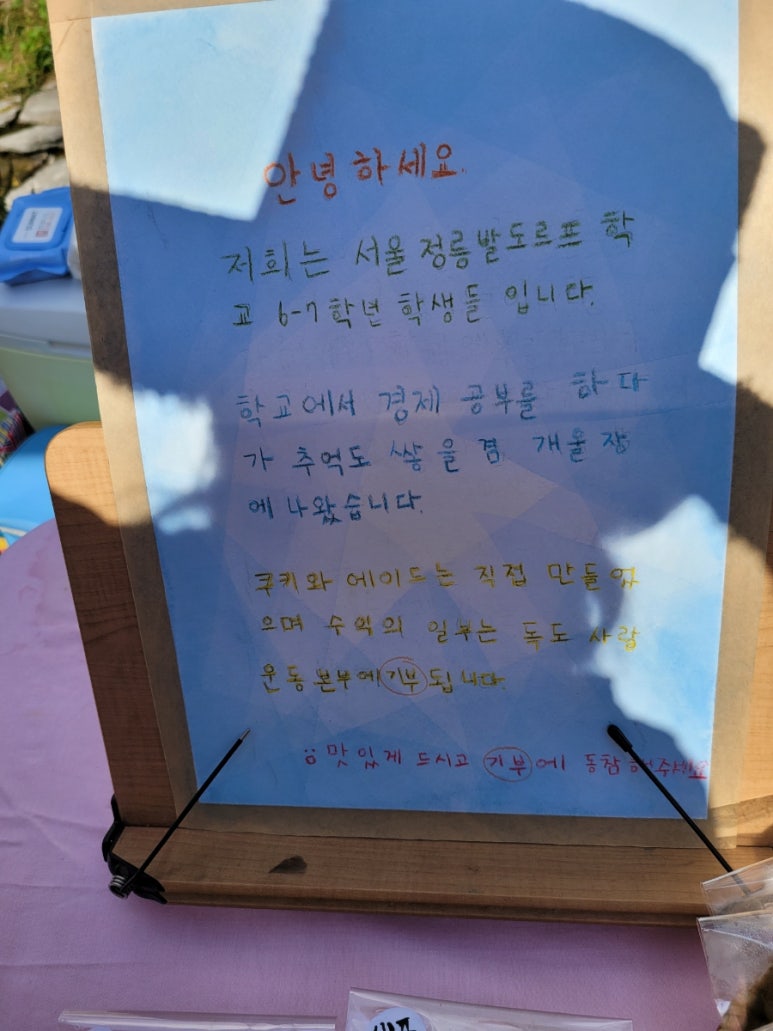 안녕하세요.
저희는 서울정릉발도르프 학
교 6-7학년 학생들 입니다.
학교에서 경제 공부를 하다
가 추억도 쌓을 겸 개울장
에 나왔습니다.
쿠키와 에이드는 직접 만들었
으며 수익의 일부는 독도 사랑
운동본부에 기부 됩니다.
맛있게 드시고 기부에 동참해주세요